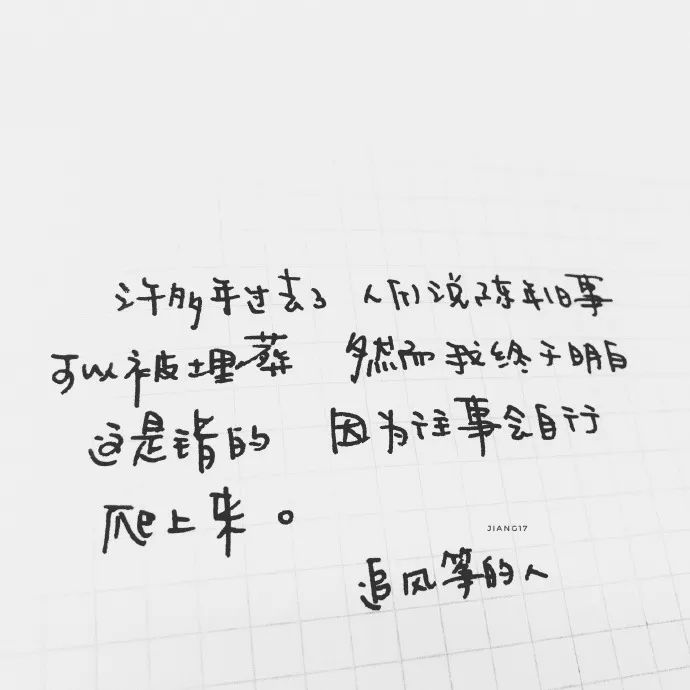 许多年过去了 人们说陈年旧事
可以被埋葬 然而我终于明白
这是错的 因为往事会自行
爬上来。
JIANG17
追风筝的人